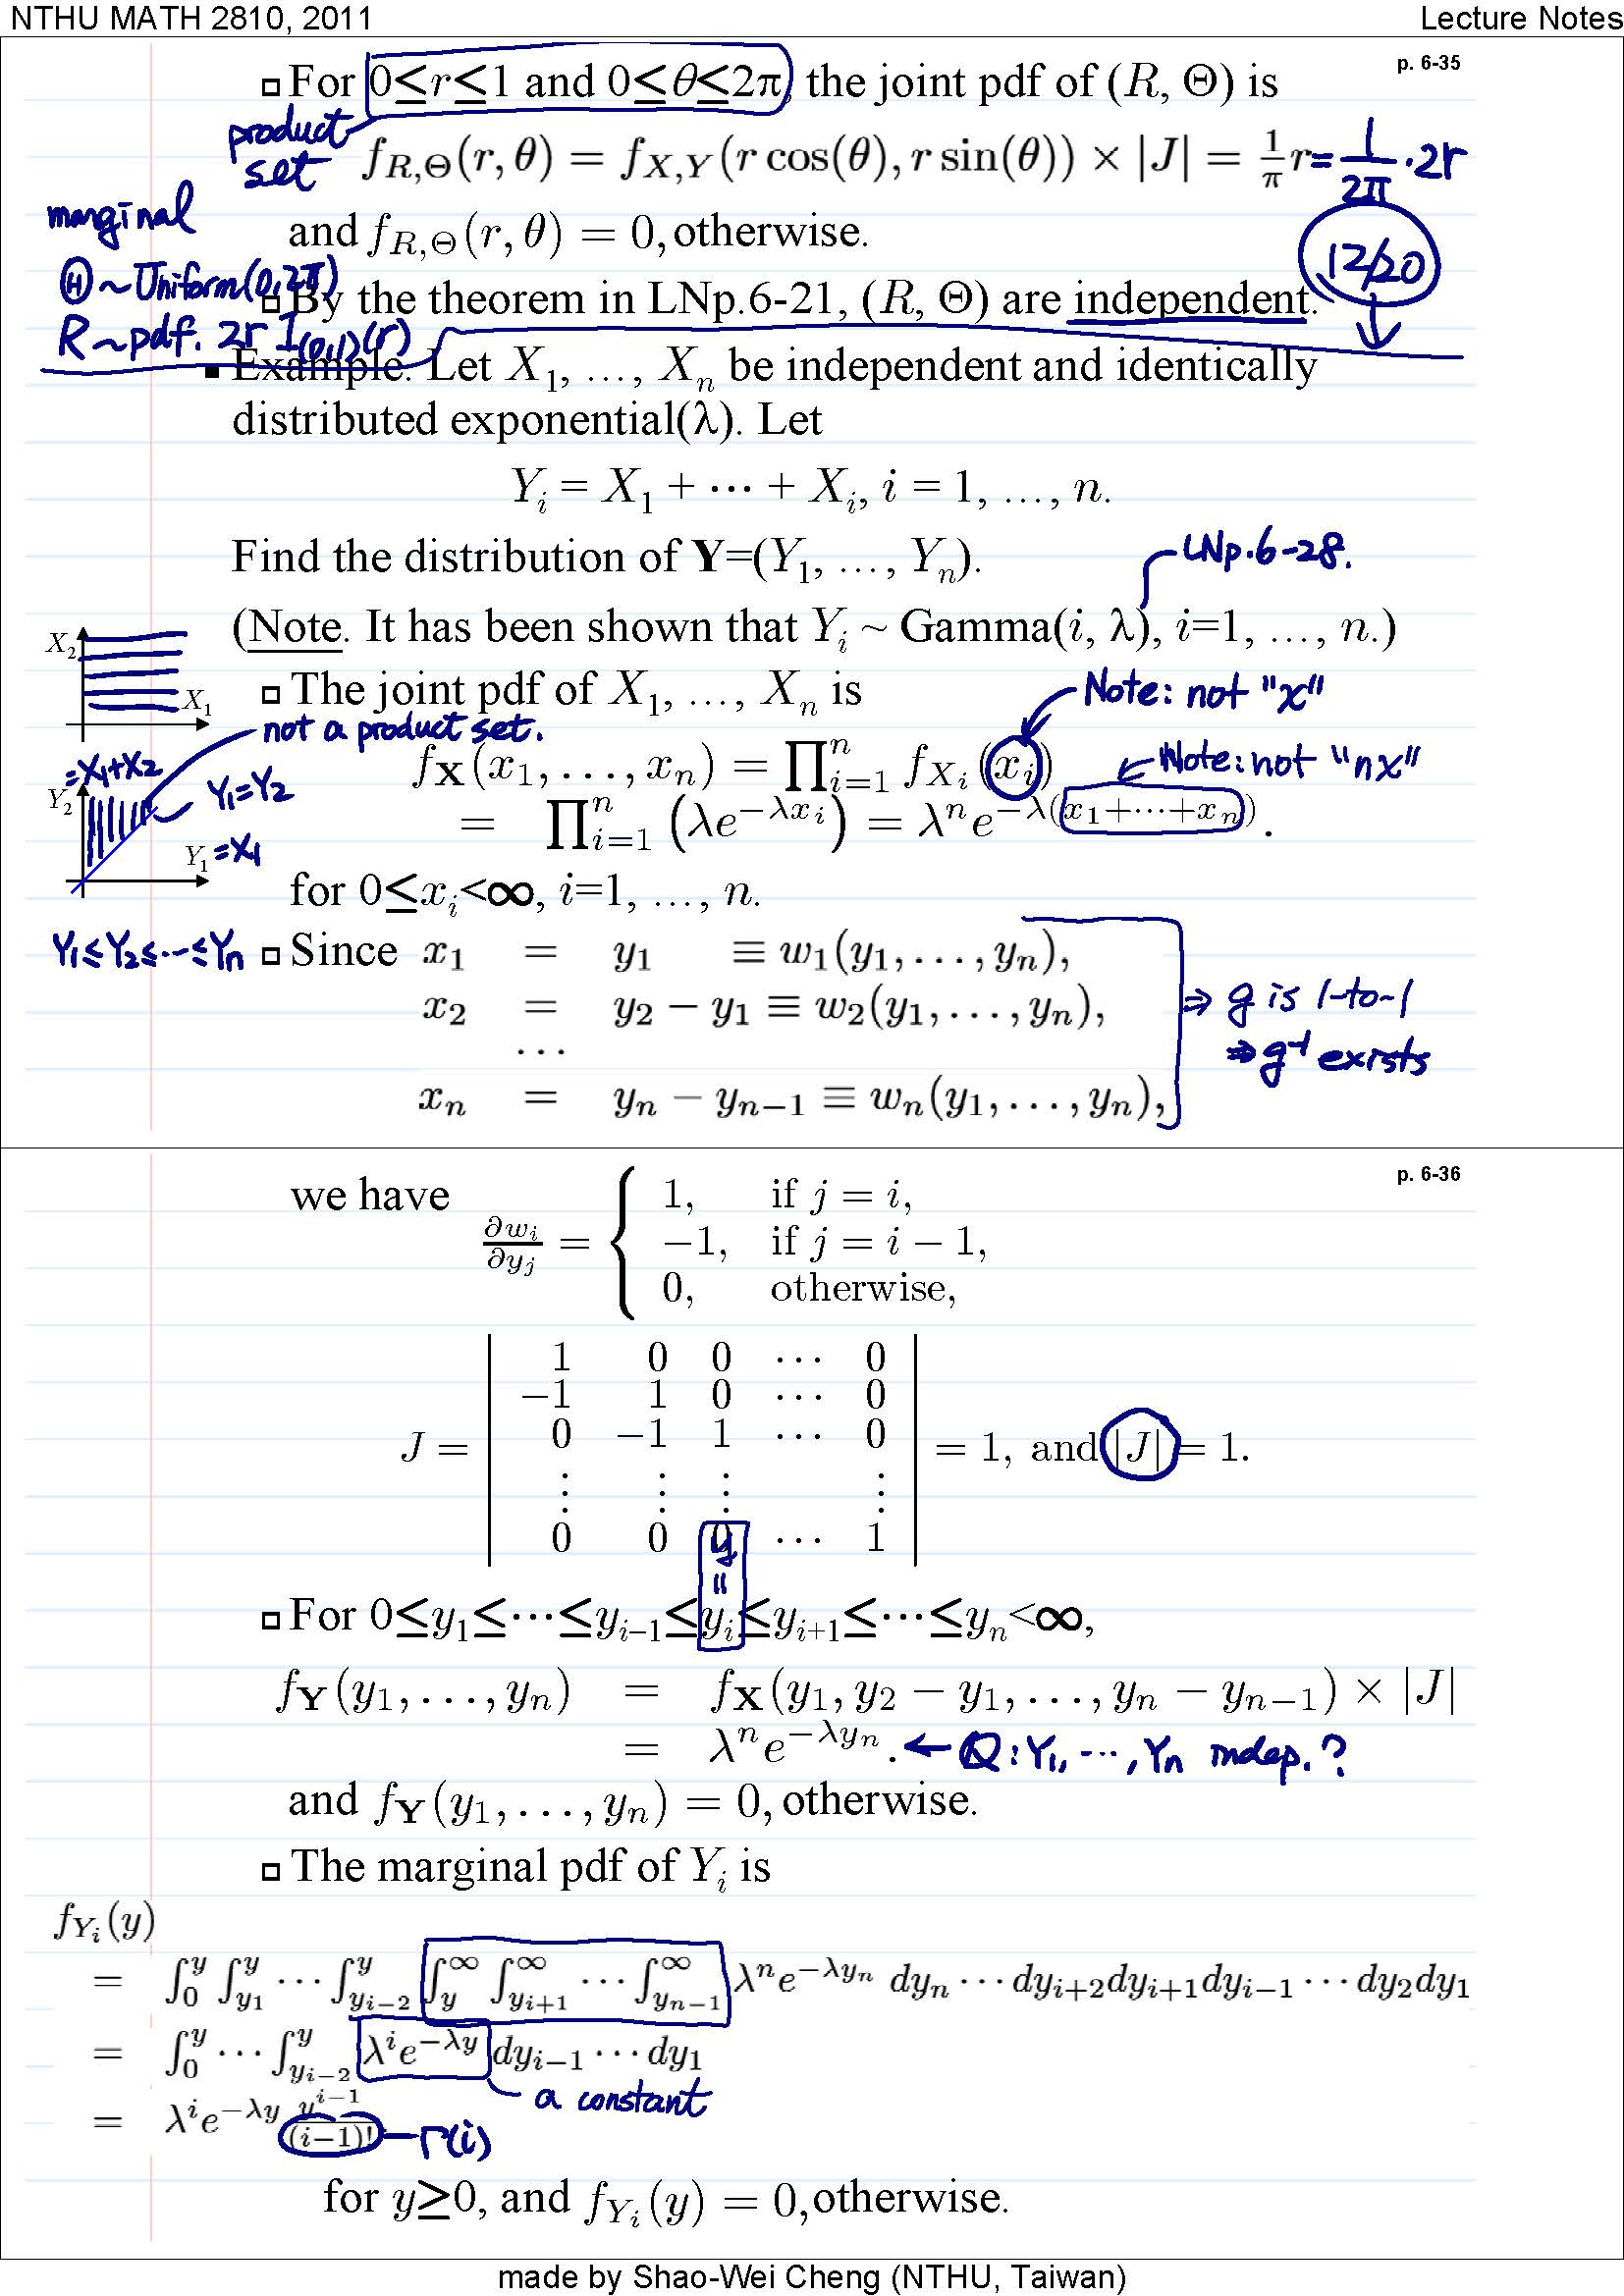 NTHU MATH 2810, 2011 Lecture Notes
p. 6-35
For 0≤r≤1 and 0≤θ≤2π, the joint pdf of (R, Θ) is
product set
f_{R,Θ}(r, θ) = f_{X,Y}(r cos(θ), r sin(θ)) × |J| = 1/π r = 1/2π · 2r
marginal
and f_{R,Θ}(r, θ) = 0, otherwise.
12/20
Θ ~ Uniform(0, 2π)
By the theorem in LNp.6-21, (R, Θ) are independent.
R ~ pdf. 2r I_{(0,1)}(r)
Example. Let X_1, …, X_n be independent and identically
distributed exponential(λ). Let
Y_i = X_1 + ⋯ + X_i, i = 1, …, n.
Find the distribution of Y=(Y_1, …, Y_n).
LNp.6-28.
(Note. It has been shown that Y_i ~ Gamma(i, λ), i=1, …, n.)
X_2
X_1
The joint pdf of X_1, …, X_n is
Note: not "x"
not a product set.
f_X(x_1, …, x_n) = ∏_{i=1}^n f_{X_i}(x_i)
Note: not "nx"
= X_1+X_2
Y_2
Y_1=Y_2
= ∏_{i=1}^n (λe^{-λx_i}) = λ^n e^{-λ(x_1+⋯+x_n)}.
Y_1 = X_1
for 0≤x_i<∞, i=1, …, n.
Y_1 ≤ Y_2 ≤ ⋯ ≤ Y_n
Since x_1 = y_1 ≡ w_1(y_1, …, y_n),
x_2 = y_2 − y_1 ≡ w_2(y_1, …, y_n),
⇒ g is 1-to-1
⋯
⇒ g^{-1} exists
x_n = y_n − y_{n−1} ≡ w_n(y_1, …, y_n),
p. 6-36
we have
∂w_i/∂y_j = { 1, if j = i,
−1, if j = i − 1,
0, otherwise,
J = | 1 0 0 ⋯ 0
−1 1 0 ⋯ 0
0 −1 1 ⋯ 0
⋮ ⋮ ⋮ ⋮
0 0 0 ⋯ 1 | = 1, and |J| = 1.
y
=
For 0≤y_1≤⋯≤y_{i−1}≤y_i≤y_{i+1}≤⋯≤y_n<∞,
f_Y(y_1, …, y_n) = f_X(y_1, y_2 − y_1, …, y_n − y_{n−1}) × |J|
= λ^n e^{−λy_n}. ← Q: Y_1, ⋯, Y_n indep.?
and f_Y(y_1, …, y_n) = 0, otherwise.
The marginal pdf of Y_i is
f_{Y_i}(y)
= ∫_0^y ∫_{y_1}^y ⋯ ∫_{y_{i−2}}^y ∫_y^∞ ∫_{y_{i+1}}^∞ ⋯ ∫_{y_{n−1}}^∞ λ^n e^{−λy_n} dy_n ⋯ dy_{i+2}dy_{i+1}dy_{i−1} ⋯ dy_2dy_1
= ∫_0^y ⋯ ∫_{y_{i−2}}^y λ^i e^{−λy} dy_{i−1} ⋯ dy_1
a constant
= λ^i e^{−λy} y^{i−1}/(i−1)! Γ(i)
for y≥0, and f_{Y_i}(y) = 0, otherwise.
made by Shao-Wei Cheng (NTHU, Taiwan)